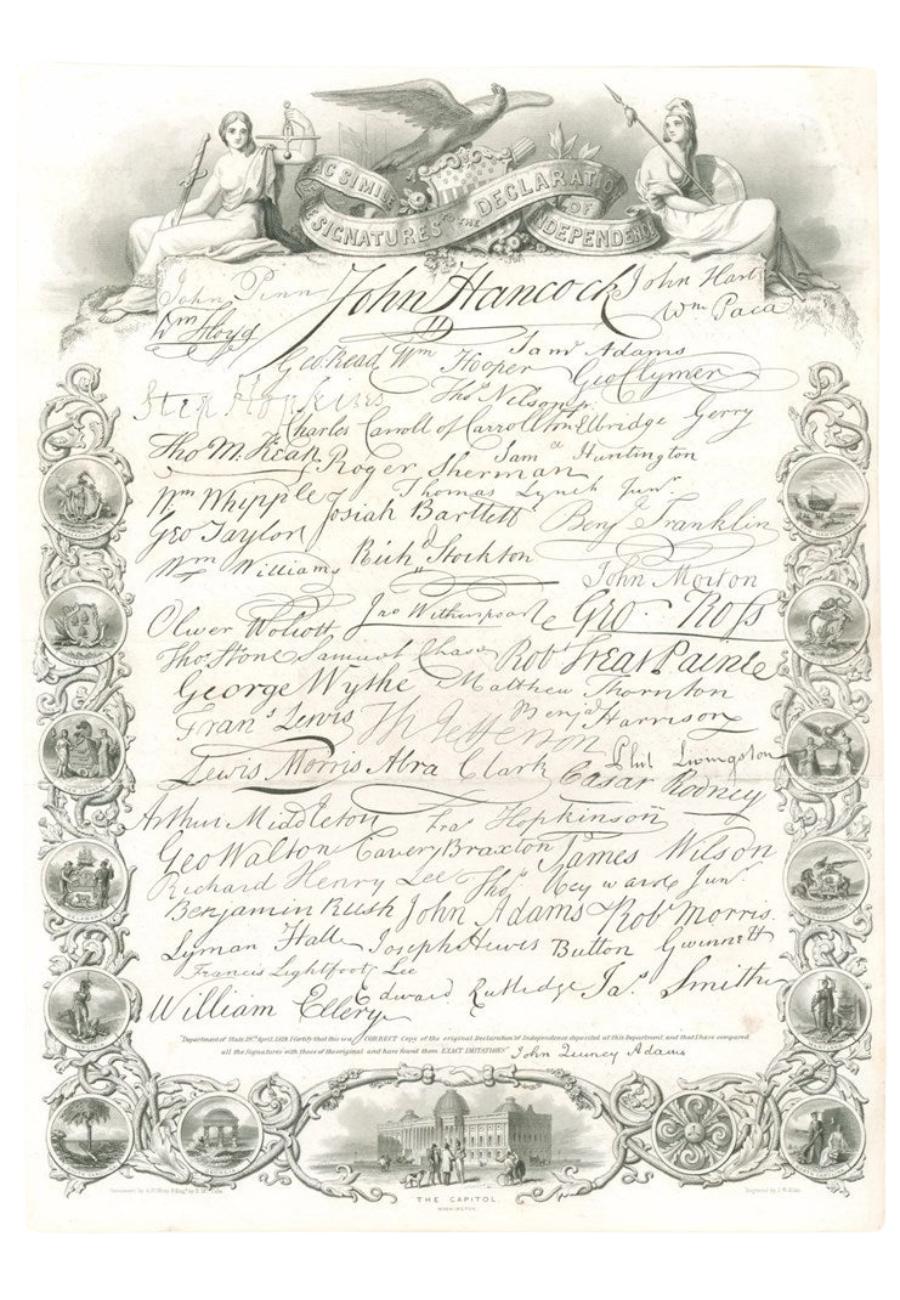 FAC SIMILE
OF THE SIGNATURES TO THE DECLARATION OF INDEPENDENCE
John Penn John Hancock John Hart
Wm Floyd Wm Paca
Geo. Read Wm Hooper Saml Adams
Geo Clymer
Step Hopkins Thos Nelson jr.
Charles Carroll of Carrollton Elbridge Gerry
Tho M: Kean Roger Sherman Saml Huntington
Wm Whipple Thomas Lynch Junr.
Josiah Bartlett Benj Franklin
Geo Taylor
Wm Williams Richd Stockton John Morton
Oliver Wolcott Jno Witherspoon Geo. Ross
Thos Stone Samuel Chase Robt Treat Paine
George Wythe Matthew Thornton
Frans Lewis Th Jefferson Benja Harrison
Lewis Morris Abra Clark Phil Livingston
Cæsar Rodney
Arthur Middleton Fras Hopkinson
Geo Walton Carter Braxton James Wilson
Richard Henry Lee Thos Heyward Junr.
Benjamin Rush John Adams Robt Morris.
Lyman Hall Joseph Hewes Button Gwinnett
Francis Lightfoot Lee
William Ellery Edward Rutledge Jas Smith
"Department of State 28th April, 1819. I Certify that this is a CORRECT Copy of the original Declaration of Independence deposited at this Department and that I have compared
all the Signatures with those of the original and have found them EXACT IMITATIONS" John Quincy Adams
THE CAPITOL.
WASHINGTON.